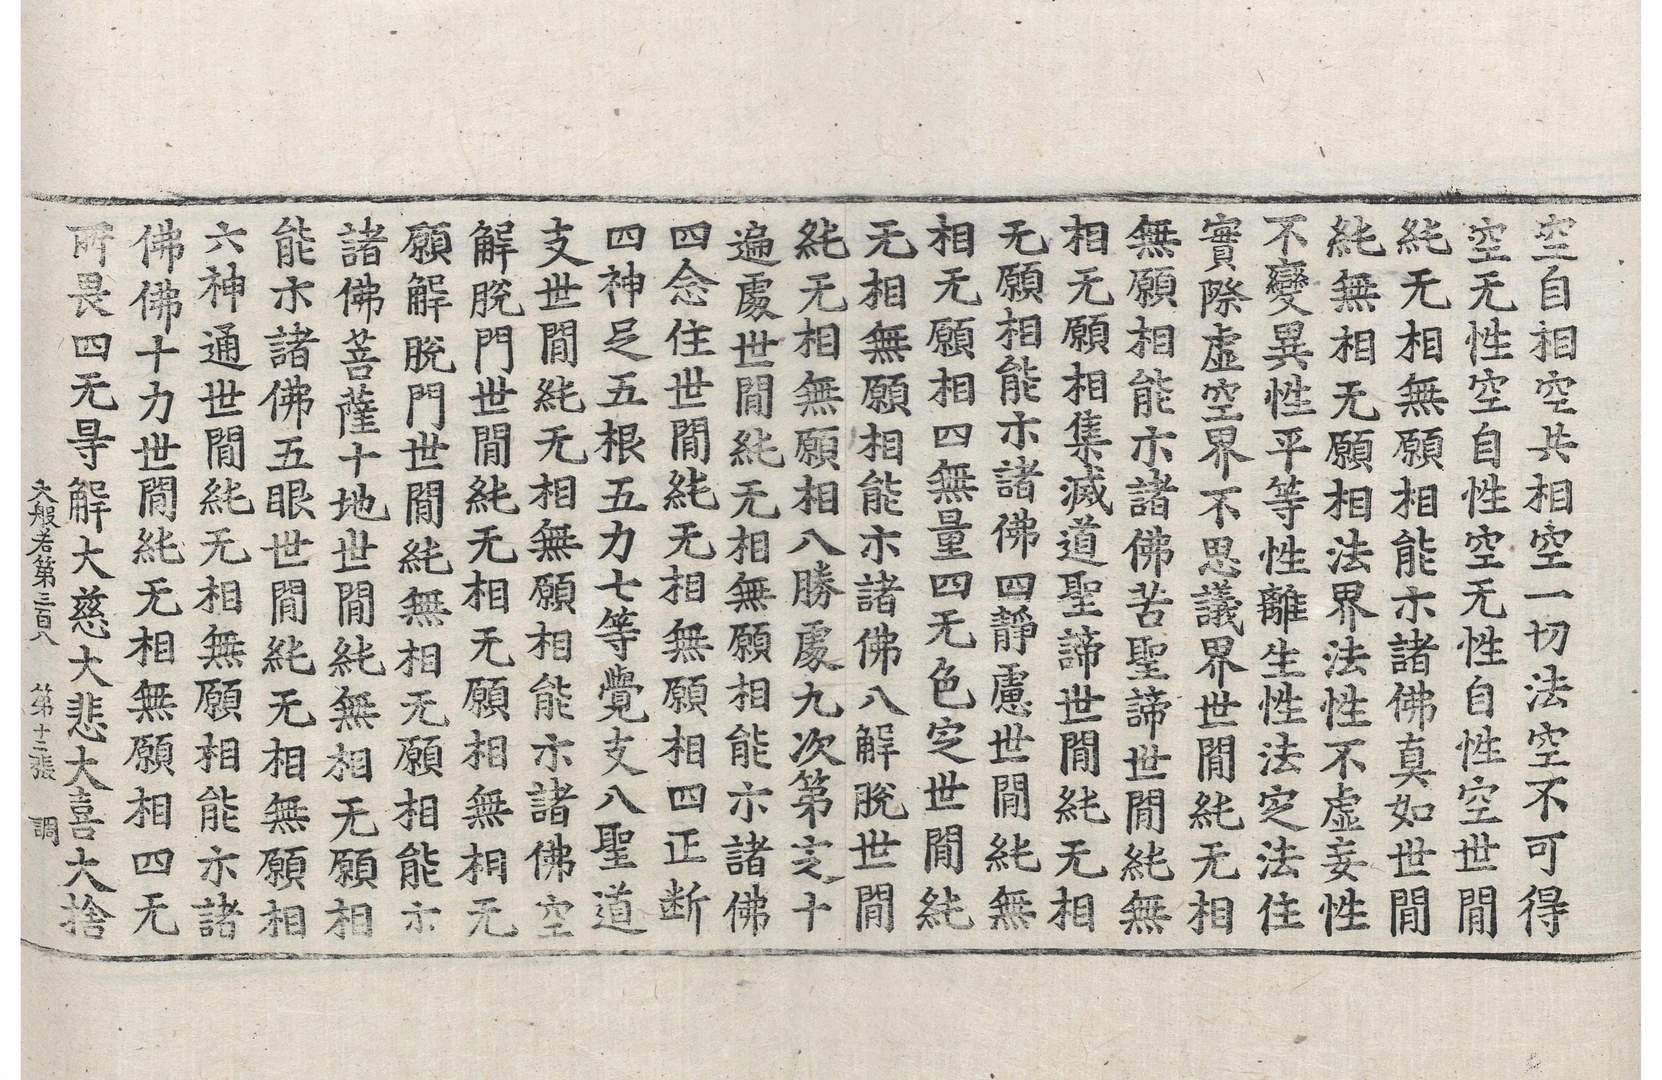 空自相空共相空一切法空不可得
空无性空自性空无性自性空世間
純无相無願相能示諸佛真如世間
純無相无願相法界法性不虛妄性
不變異性平等性離生性法定法住
實際虛空界不思議界世間純无相
無願相能示諸佛苦聖諦世間純無
相无願相集滅道聖諦世間純无相
无願相能示諸佛四靜慮世間純無
相无願相四無量四无色定世間純
无相無願相能示諸佛八解脫世間
純无相無願相八勝處九次第定十
遍處世間純无相無願相能示諸佛
四念住世間純无相無願相四正断
四神足五根五力七等覺支八聖道
支世間純无相無願相能示諸佛空
解脫門世間純无相无願相無相无
願解脫門世間純無相无願相能示
諸佛菩薩十地世間純無相无願相
能示諸佛五眼世間純无相無願相
六神通世間純无相無願相能示諸
佛佛十力世間純无相無願相四无
所畏四无㝵解大慈大悲大喜大捨
大般若第三百八　第十二張　調